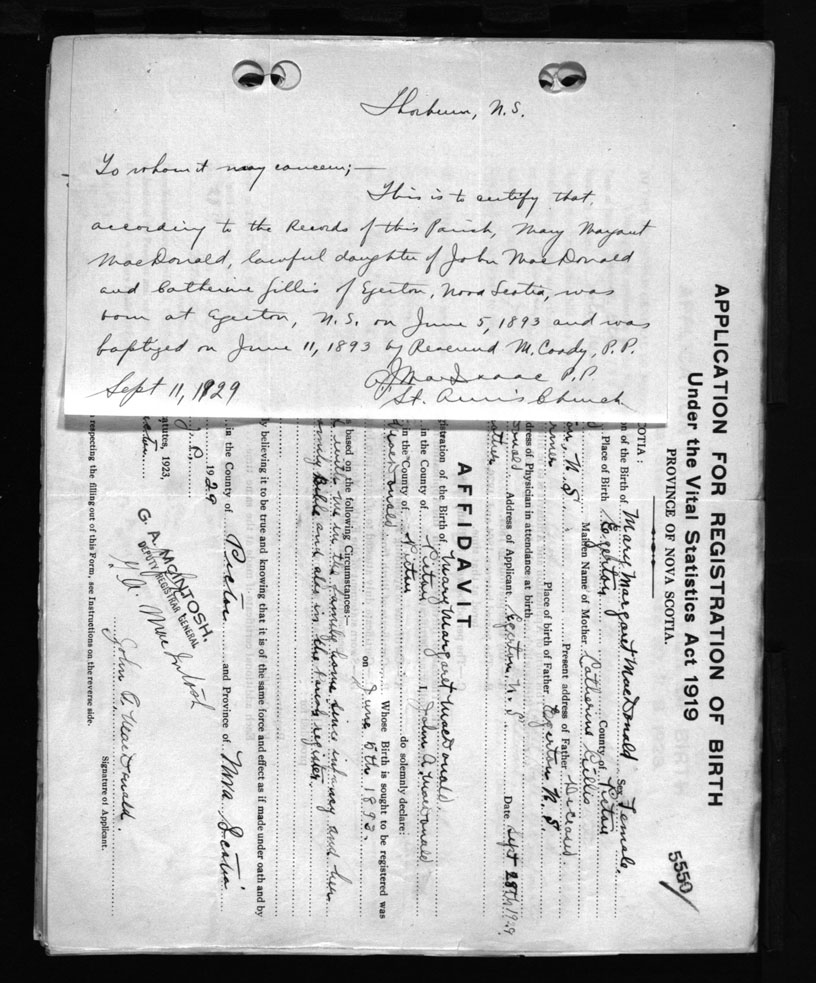 Thorburn, N.S.
To whom it may concern;—
This is to certify that,
according to the Records of this Parish, Mary Margaret
MacDonald, lawful daughter of John MacDonald
and Catherine Gillis of Egerton, Nova Scotia, was
born at Egerton, N.S. on June 5, 1893 and was
baptized on June 11, 1893 by Reverend M. Coady, P.P.
MacIsaac P.P.
Sept 11, 1929 St. Ann's Church
APPLICATION FOR REGISTRATION OF BIRTH
Under the Vital Statistics Act 1919
PROVINCE OF NOVA SCOTIA.
5550
COTIA:
on of the Birth of Mary Margaret MacDonald Sex Female.
Place of Birth Egerton County of Pictou
Maiden Name of Mother Catherine Gillis
on, N.S. Present address of Father Deceased.
rmer Place of birth of Father Egerton N.S.
dress of Physician in attendance at birth
onald Address of Applicant Egerton N.S. Date Sept 28th 1929
AFFIDAVIT
istration of the Birth of Mary Margaret MacDonald
in the County of Pictou I, John A. MacDonald
in the County of Pictou do solemnly declare:
MacDonald Whose Birth is sought to be registered was
on June 5th 1893.
s based on the following Circumstances:—
with me in the family home since infancy and her
family Bible and also in the Parish register.
by believing it to be true and knowing that it is of the same force and effect as if made under oath and by
in the County of Pictou and Province of Nova Scotia
1929
J.P.
tatutes, 1923,
G. A. McINTOSH,
DEPUTY REGISTRAR GENERAL
G. A. MacIntosh
John A. MacDonald.
Signature of Applicant.
respecting the filling out of this Form, see Instructions on the reverse side.